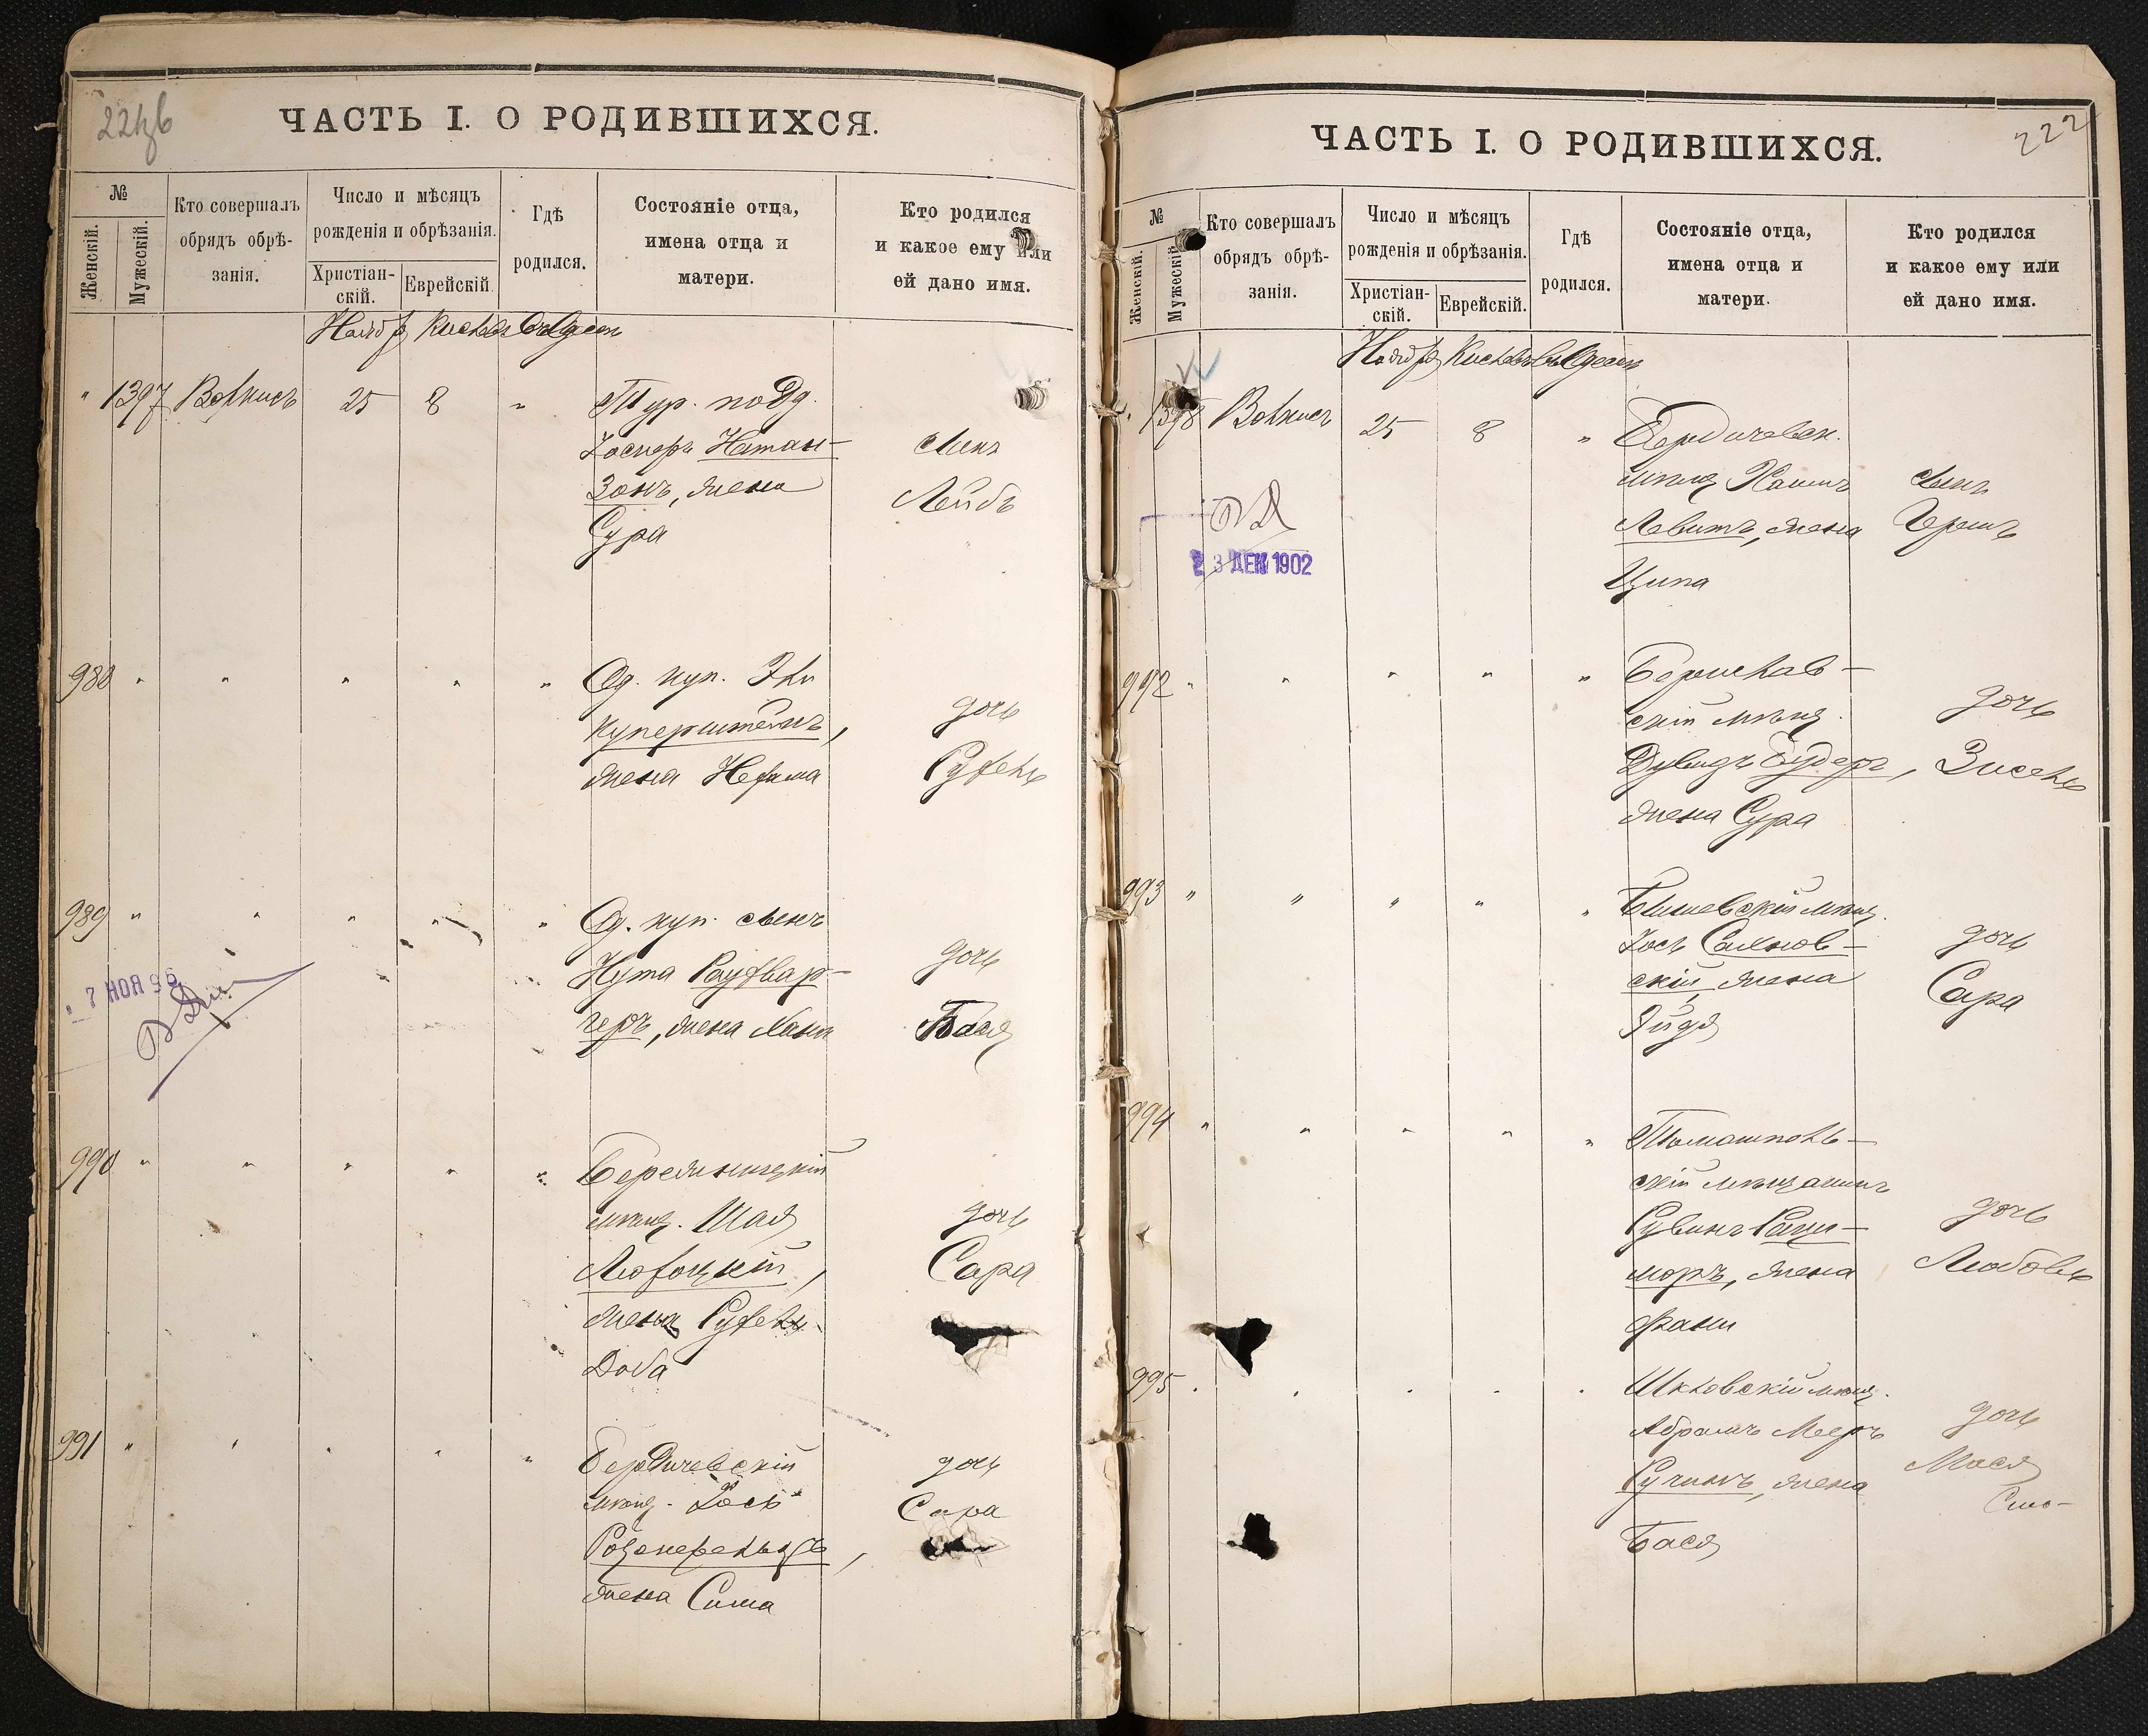 ЧАСТЬ I. О РОДИВШИХСЯ.
№
Женскій.
Мужескій.
Кто совершалъ
обрядъ обрѣ-
занія.
Число и мѣсяцъ
рожденія и обрѣзанія.
Христіан-
скій.
Еврейскій.
Гдѣ
родился.
Состояніе отца,
имена отца и
матери.
Кто родился
и какое ему или
ей дано имя.
Ноябр Кислев Одесса
" 1397 Волкисъ 25 8 " Тур. подд.
Іосифъ Натан-
зонъ, жена
Сура
сынъ
Лейбъ
988 " " " " " Од. куп.
Куперштейнъ,
жена Нехама
дочь
Рухель
989 " " " " " Од. куп. сынъ
Нута Раухвар-
геръ, жена Хана
дочь
Баня
7 НОЯ 96
990 " " " " "
мѣщ. Шая
Люфоцкій,
жена Рухель
Доба
дочь
Сара
991 " " " " " Бердичевскій
мѣщ. Іось
жена Сима
дочь
Сара
ЧАСТЬ I. О РОДИВШИХСЯ.
222
№
Женскій.
Мужескій.
Кто совершалъ
обрядъ обрѣ-
занія.
Число и мѣсяцъ
рожденія и обрѣзанія.
Христіан-
скій.
Еврейскій.
Гдѣ
родился.
Состояніе отца,
имена отца и
матери.
Кто родился
и какое ему или
ей дано имя.
Ноябр Кислев Одесса
" 1398 Волкисъ 25 8 " Бердичевск.
мѣщ. Хаимъ
Левитъ, жена
Ципа
сынъ
Гершъ
23 ДЕК 1902
992 " " " " " Берислав-
скій мѣщ.
Дувидъ Будеръ,
жена Сура
дочь
Зисель
993 " " " " "
Іось Саянов-
скій, жена
Эйдя
дочь
Сара
994 " " " " " Томашполь-
скій мѣщанинъ
Рувинъ Раци-
моръ, жена
Фани
дочь
Любовь
995 " " " " " Шкловскій мѣщ.
Абрамъ Мееръ
Ручинъ, жена
Бася
дочь
Мася